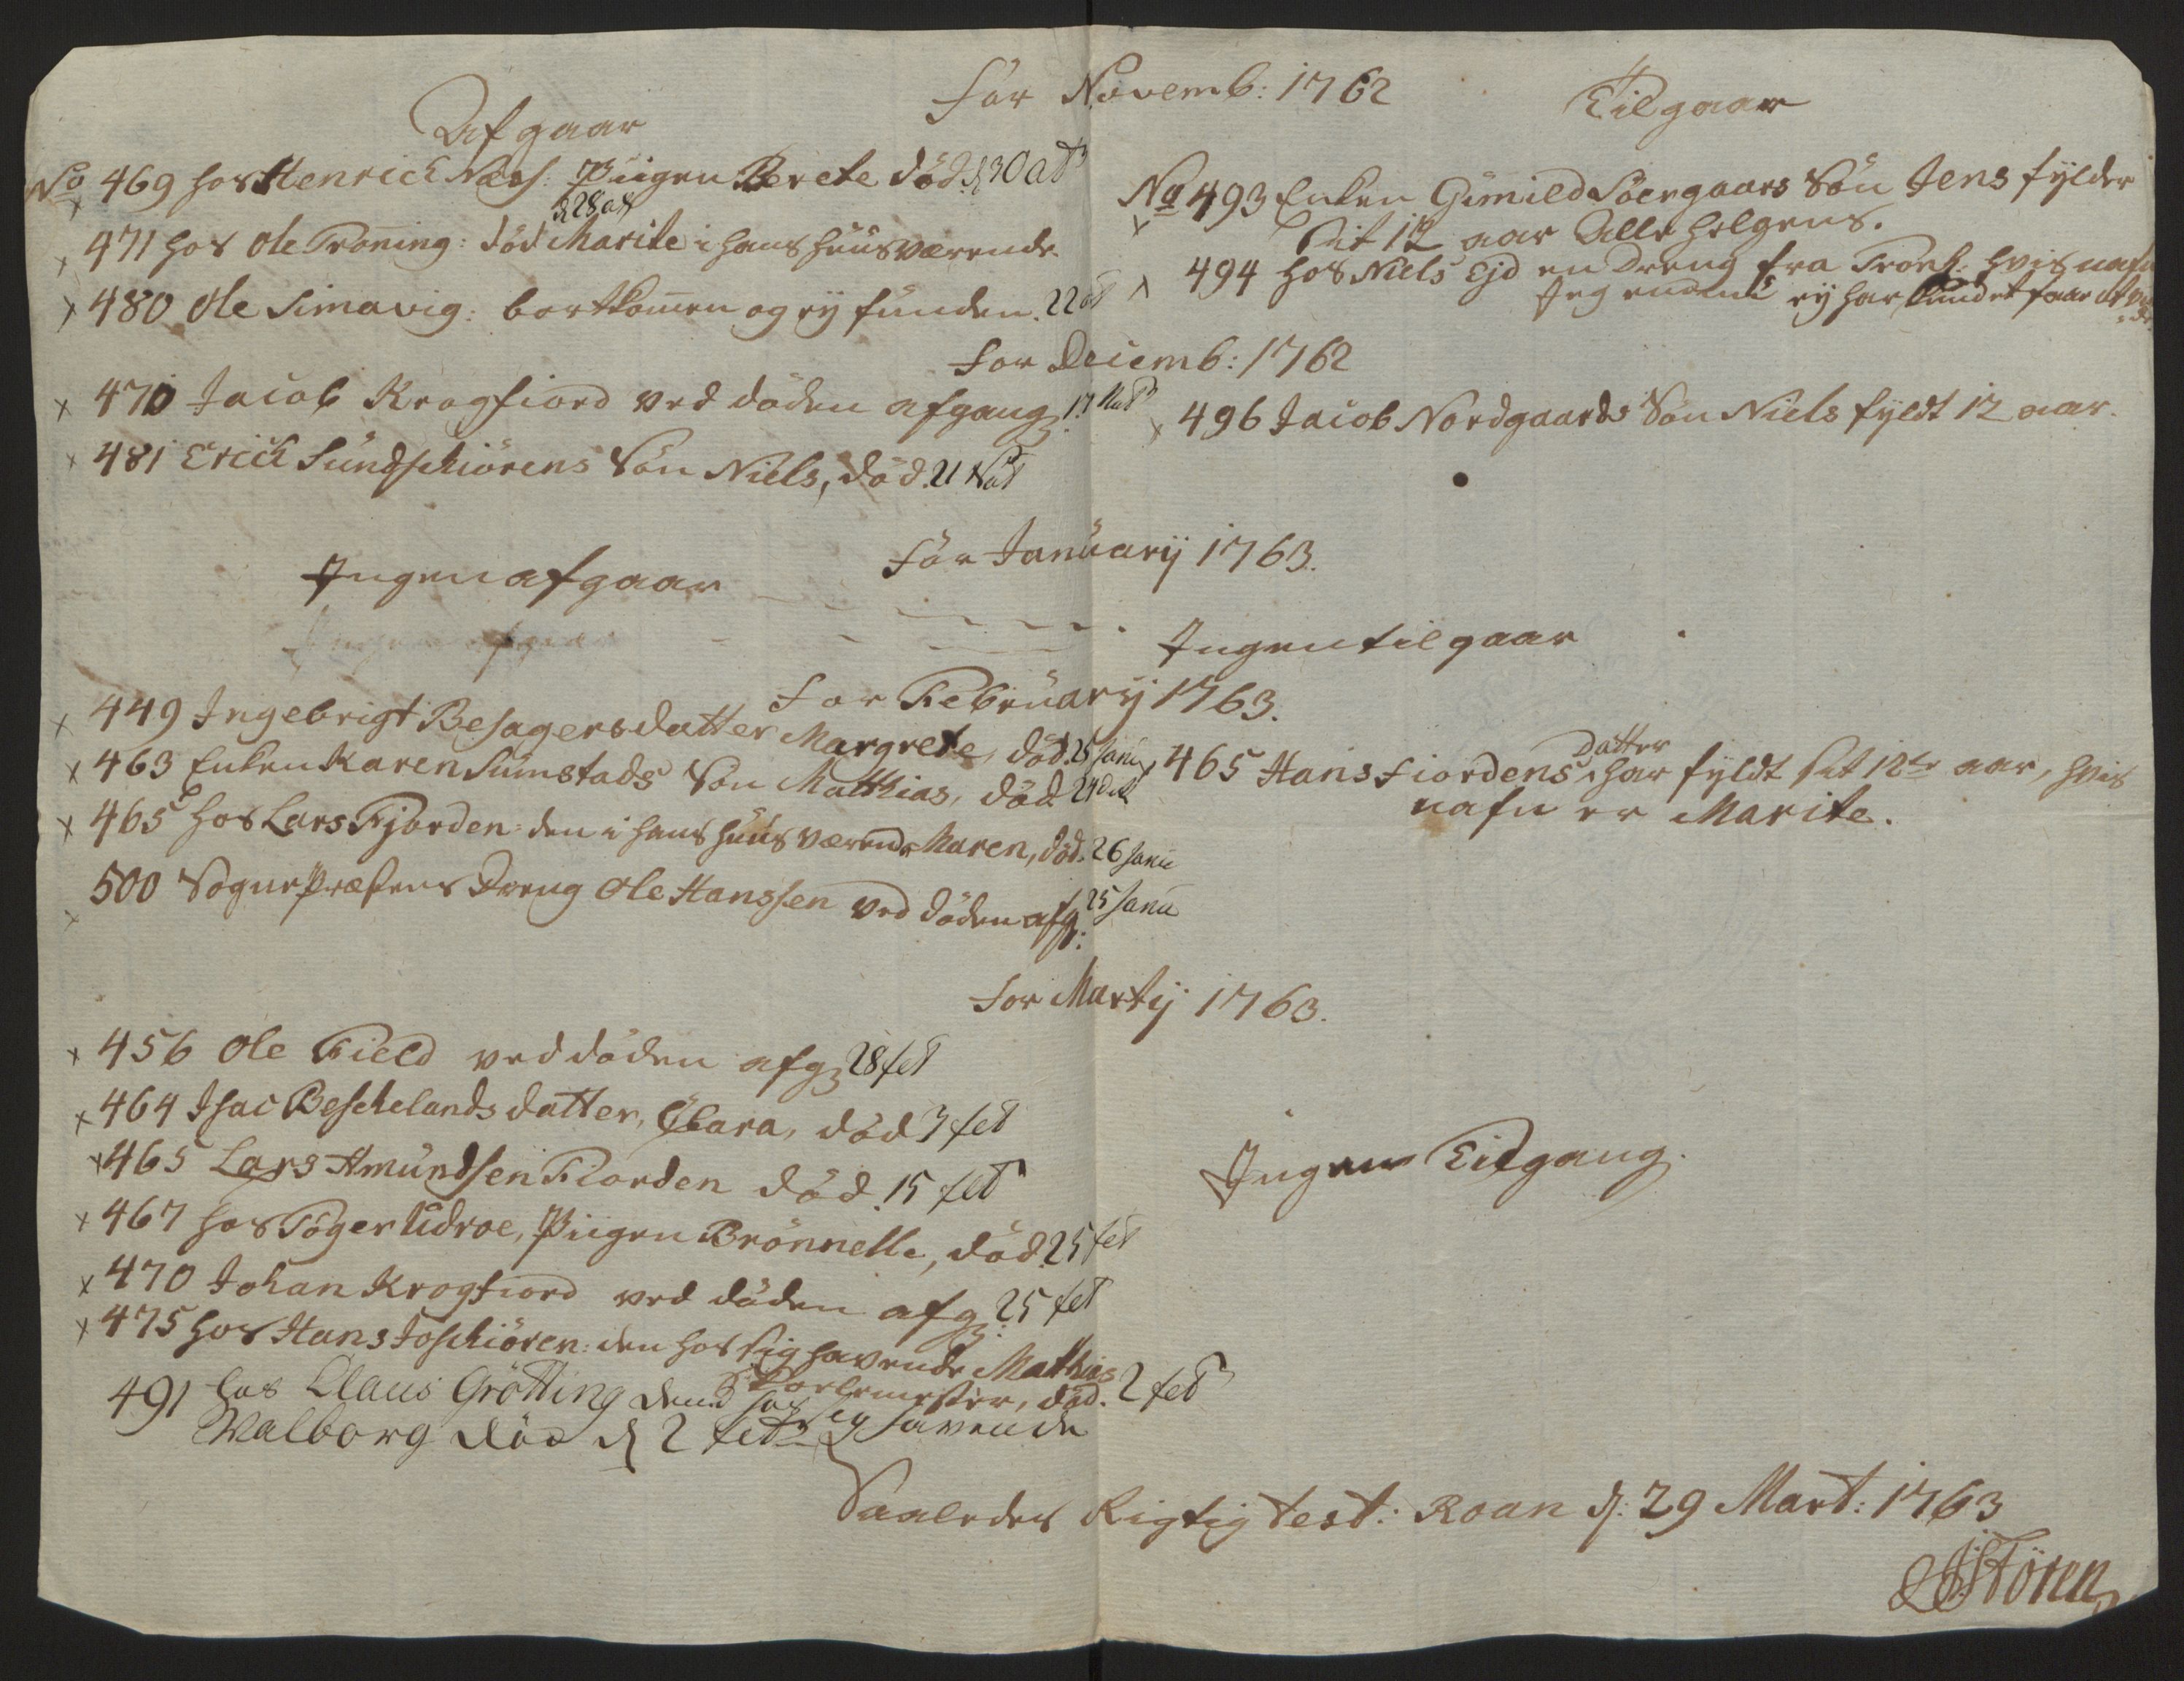 For Novemb: 1762
Afgaar
No 469 hos Henrich Næss: Piigen Berete död. d 30 oct
d 28 oct
471 hos Ole Troning: död Marite i hans huus værende
480 Ole Simavig: bortkommen og ey funden. 22 oct
Tilgaar
No 493 Enken Gunild Söergaars Sön Jens fylder
Sit 12 aar Alle helgens.
494 hos Niels Ejd en Dreng fra Tronh: hvis nafn
Jeg endnu ey har kundet faaet at vide
For Decemb: 1762
470 Jacob Kragfiord ved döden afgang. 17
481 Erich Sundschiörens Sön Niels, död. 21 Nov
496 Jacob Nordgaards Sön Niels fyldt 12 aar.
For Januarij 1763.
Ingen afgaar
Ingen tilgaar
For Februarij 1763.
449 Ingebrigt Besagers datter Margrete, död. 25 Janu
463 Enken Karen Sumstads Sön Matthias, död 24
465 hos Lars Fjorden: den i hans huus værende Maren, död. 26 Janu
500 Sogne Præstens Dreng Ole Hanssen ved döden afg: 25 Janu
Datter
465 Hans Fiordens har fyldt sit 12te aar, hvis
nafn er Marite.
For Martij 1763.
456 Ole Field ved döden afg 28 feb
464 Isac Beschelands datter, Clara, död 3 feb
465 Lars Amundsen Fiorden död. 15 feb
467 hos Töger Udroe, Piigen Brönnelle, död. 25 feb
470 Johan Kragfiord ved döden afg: 25 feb
475 hos Hans Joschiören: den hos sig havende Mathias
Skolemester, död. 2 feb
491 hos Claus Grötting dend hos sig havende
Walborg död d 2 feb
Ingen Tilgang.
Saaledes Rigtig test: Roan d: 29 Mart: 1763
Stören